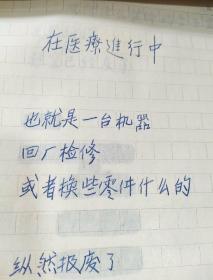 在医療進行中
也就是一台机器
回厂检修
或者换些零件什么的
纵然报废了